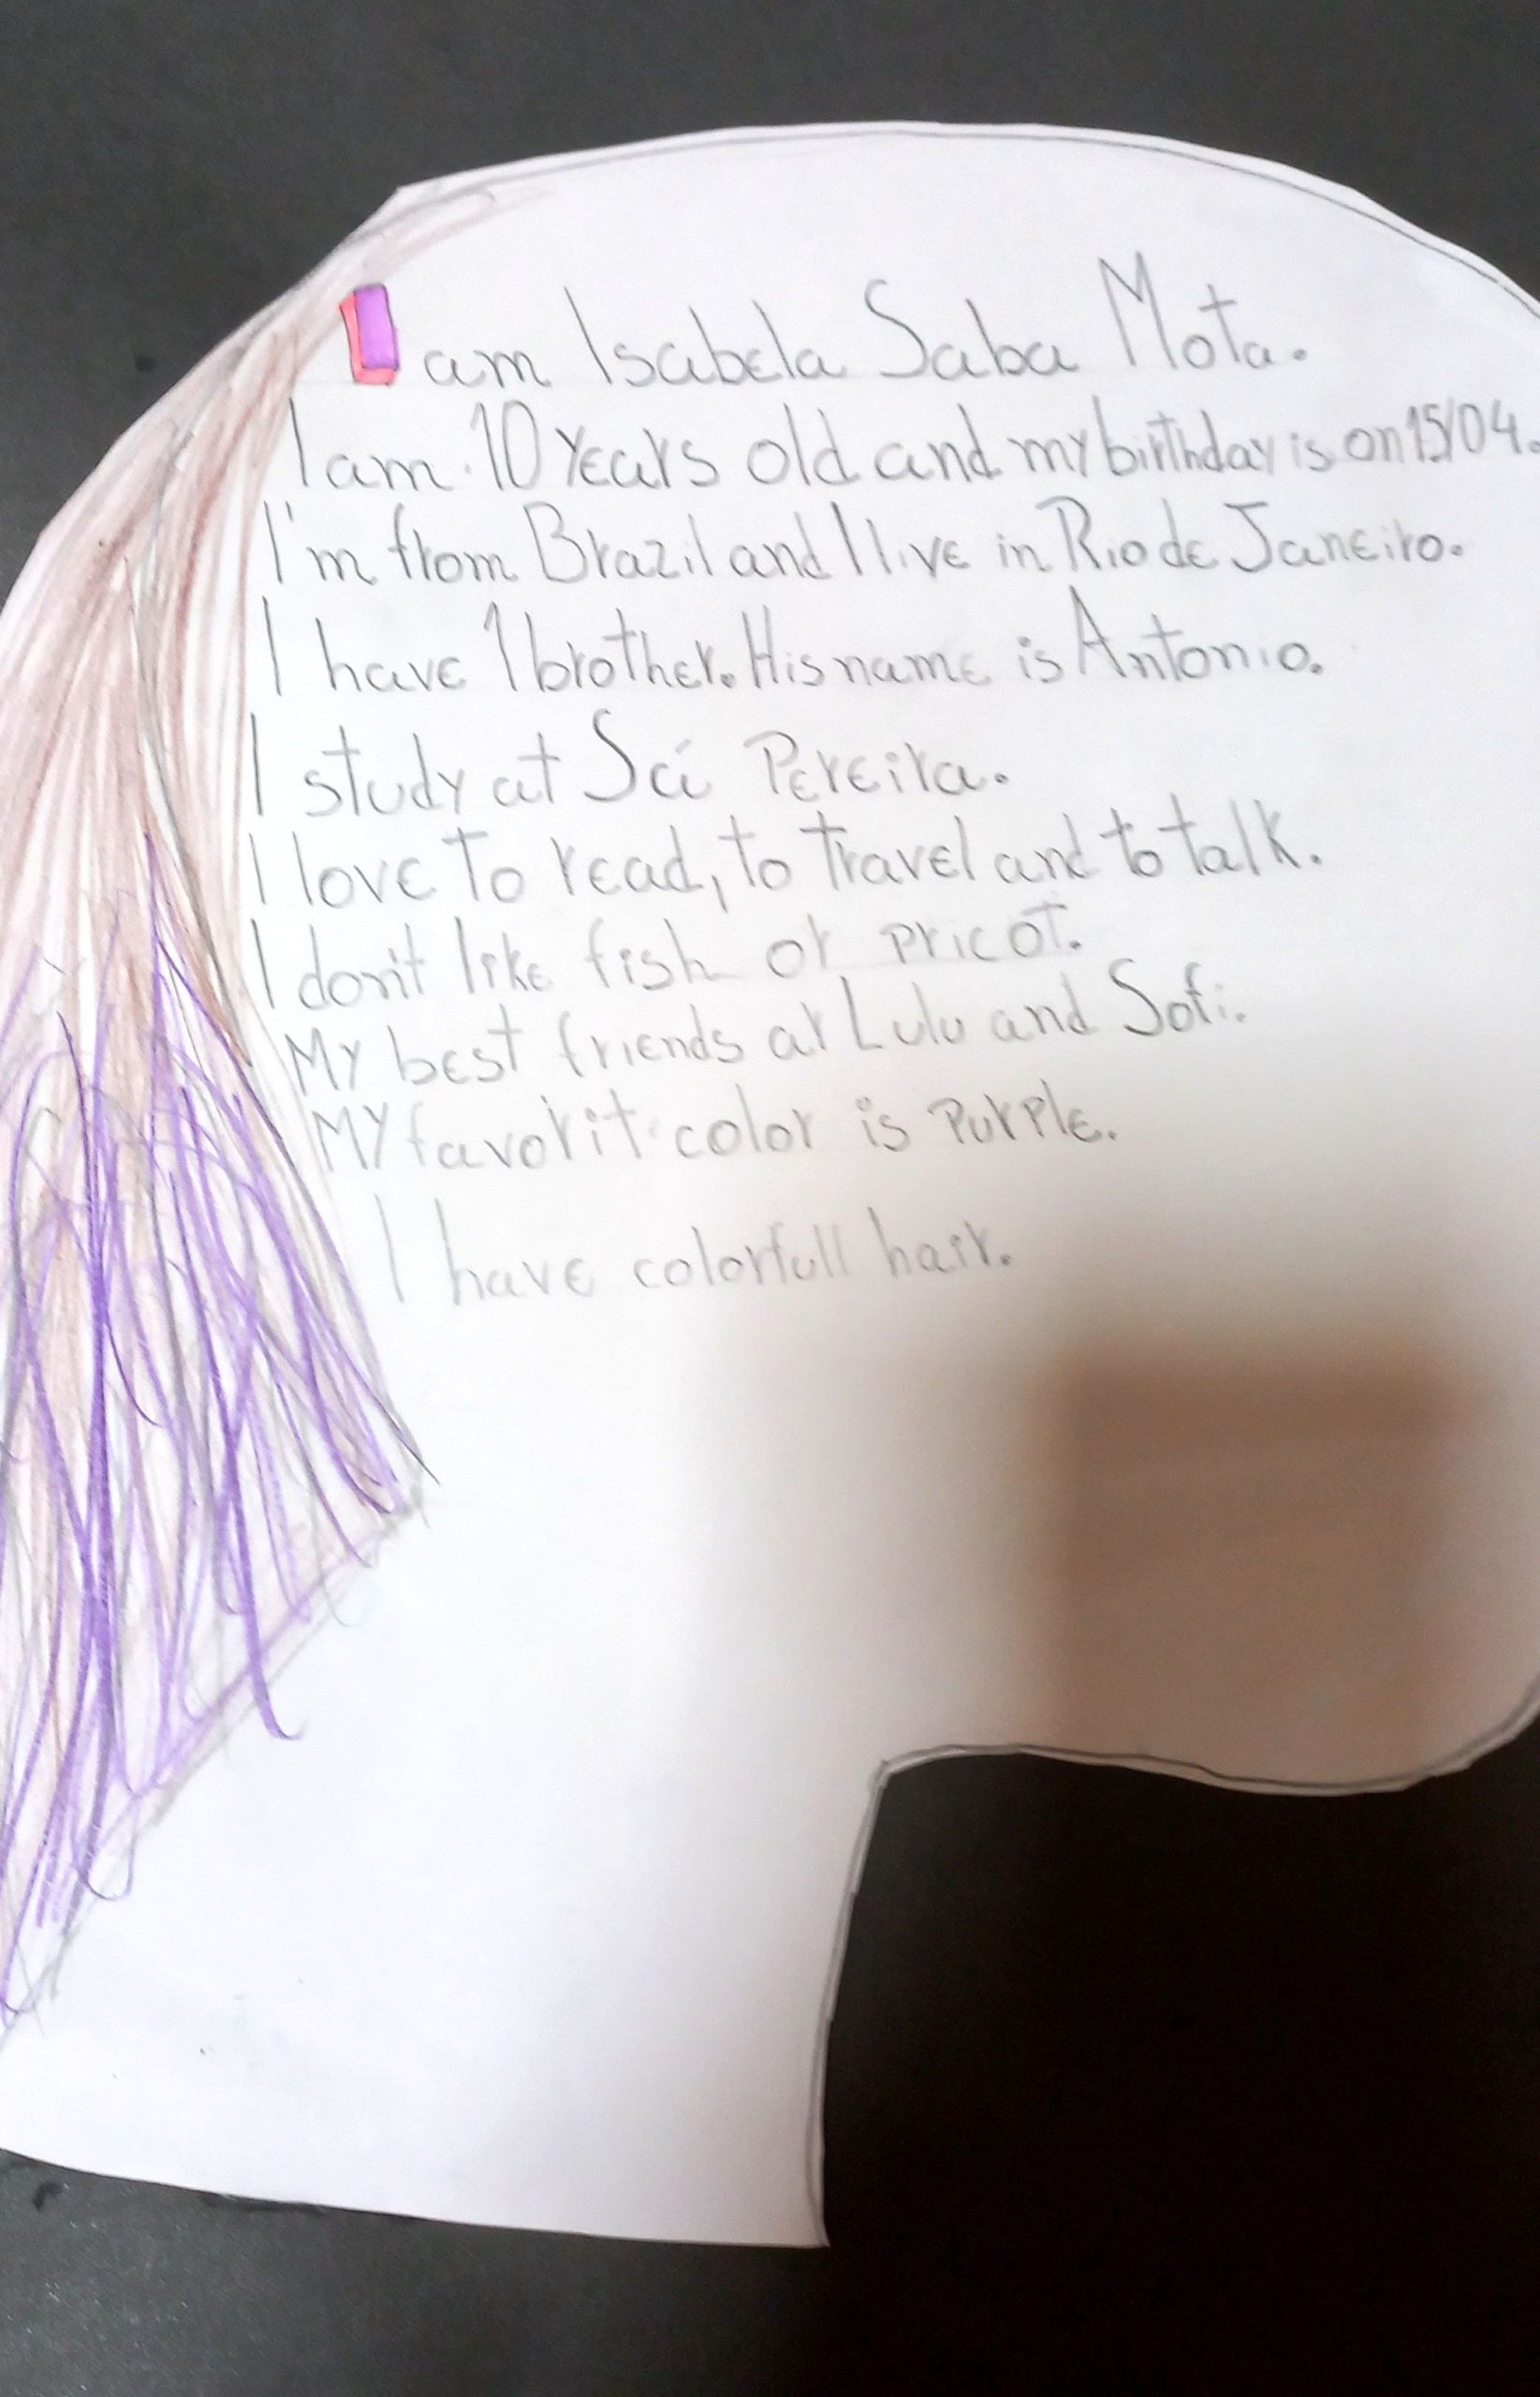 I am Isabela Saba Mota.
I am 10 years old and my birthday is on 15/04.
I'm from Brazil and I live in Rio de Janeiro.
I have 1 brother. His name is Antonio.
I study at Sá Pereira.
I love to read, to travel and to talk.
I don't like fish or pricot.
My best friends ar Lulu and Sofi.
My favorit color is purple.
I have colorfull hair.